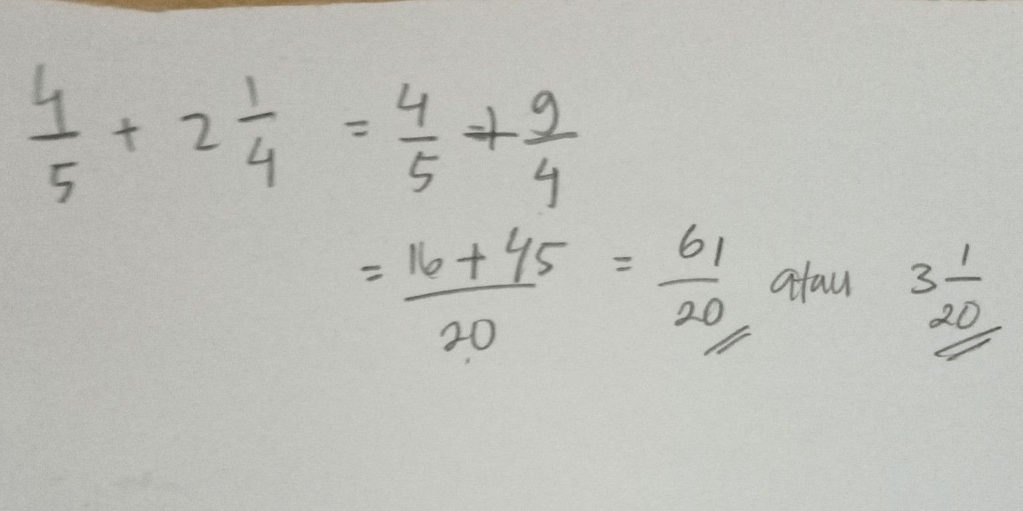 4/5 + 2 1/4 = 4/5 + 9/4
= 16 + 45 / 20 = 61/20 atau 3 1/20